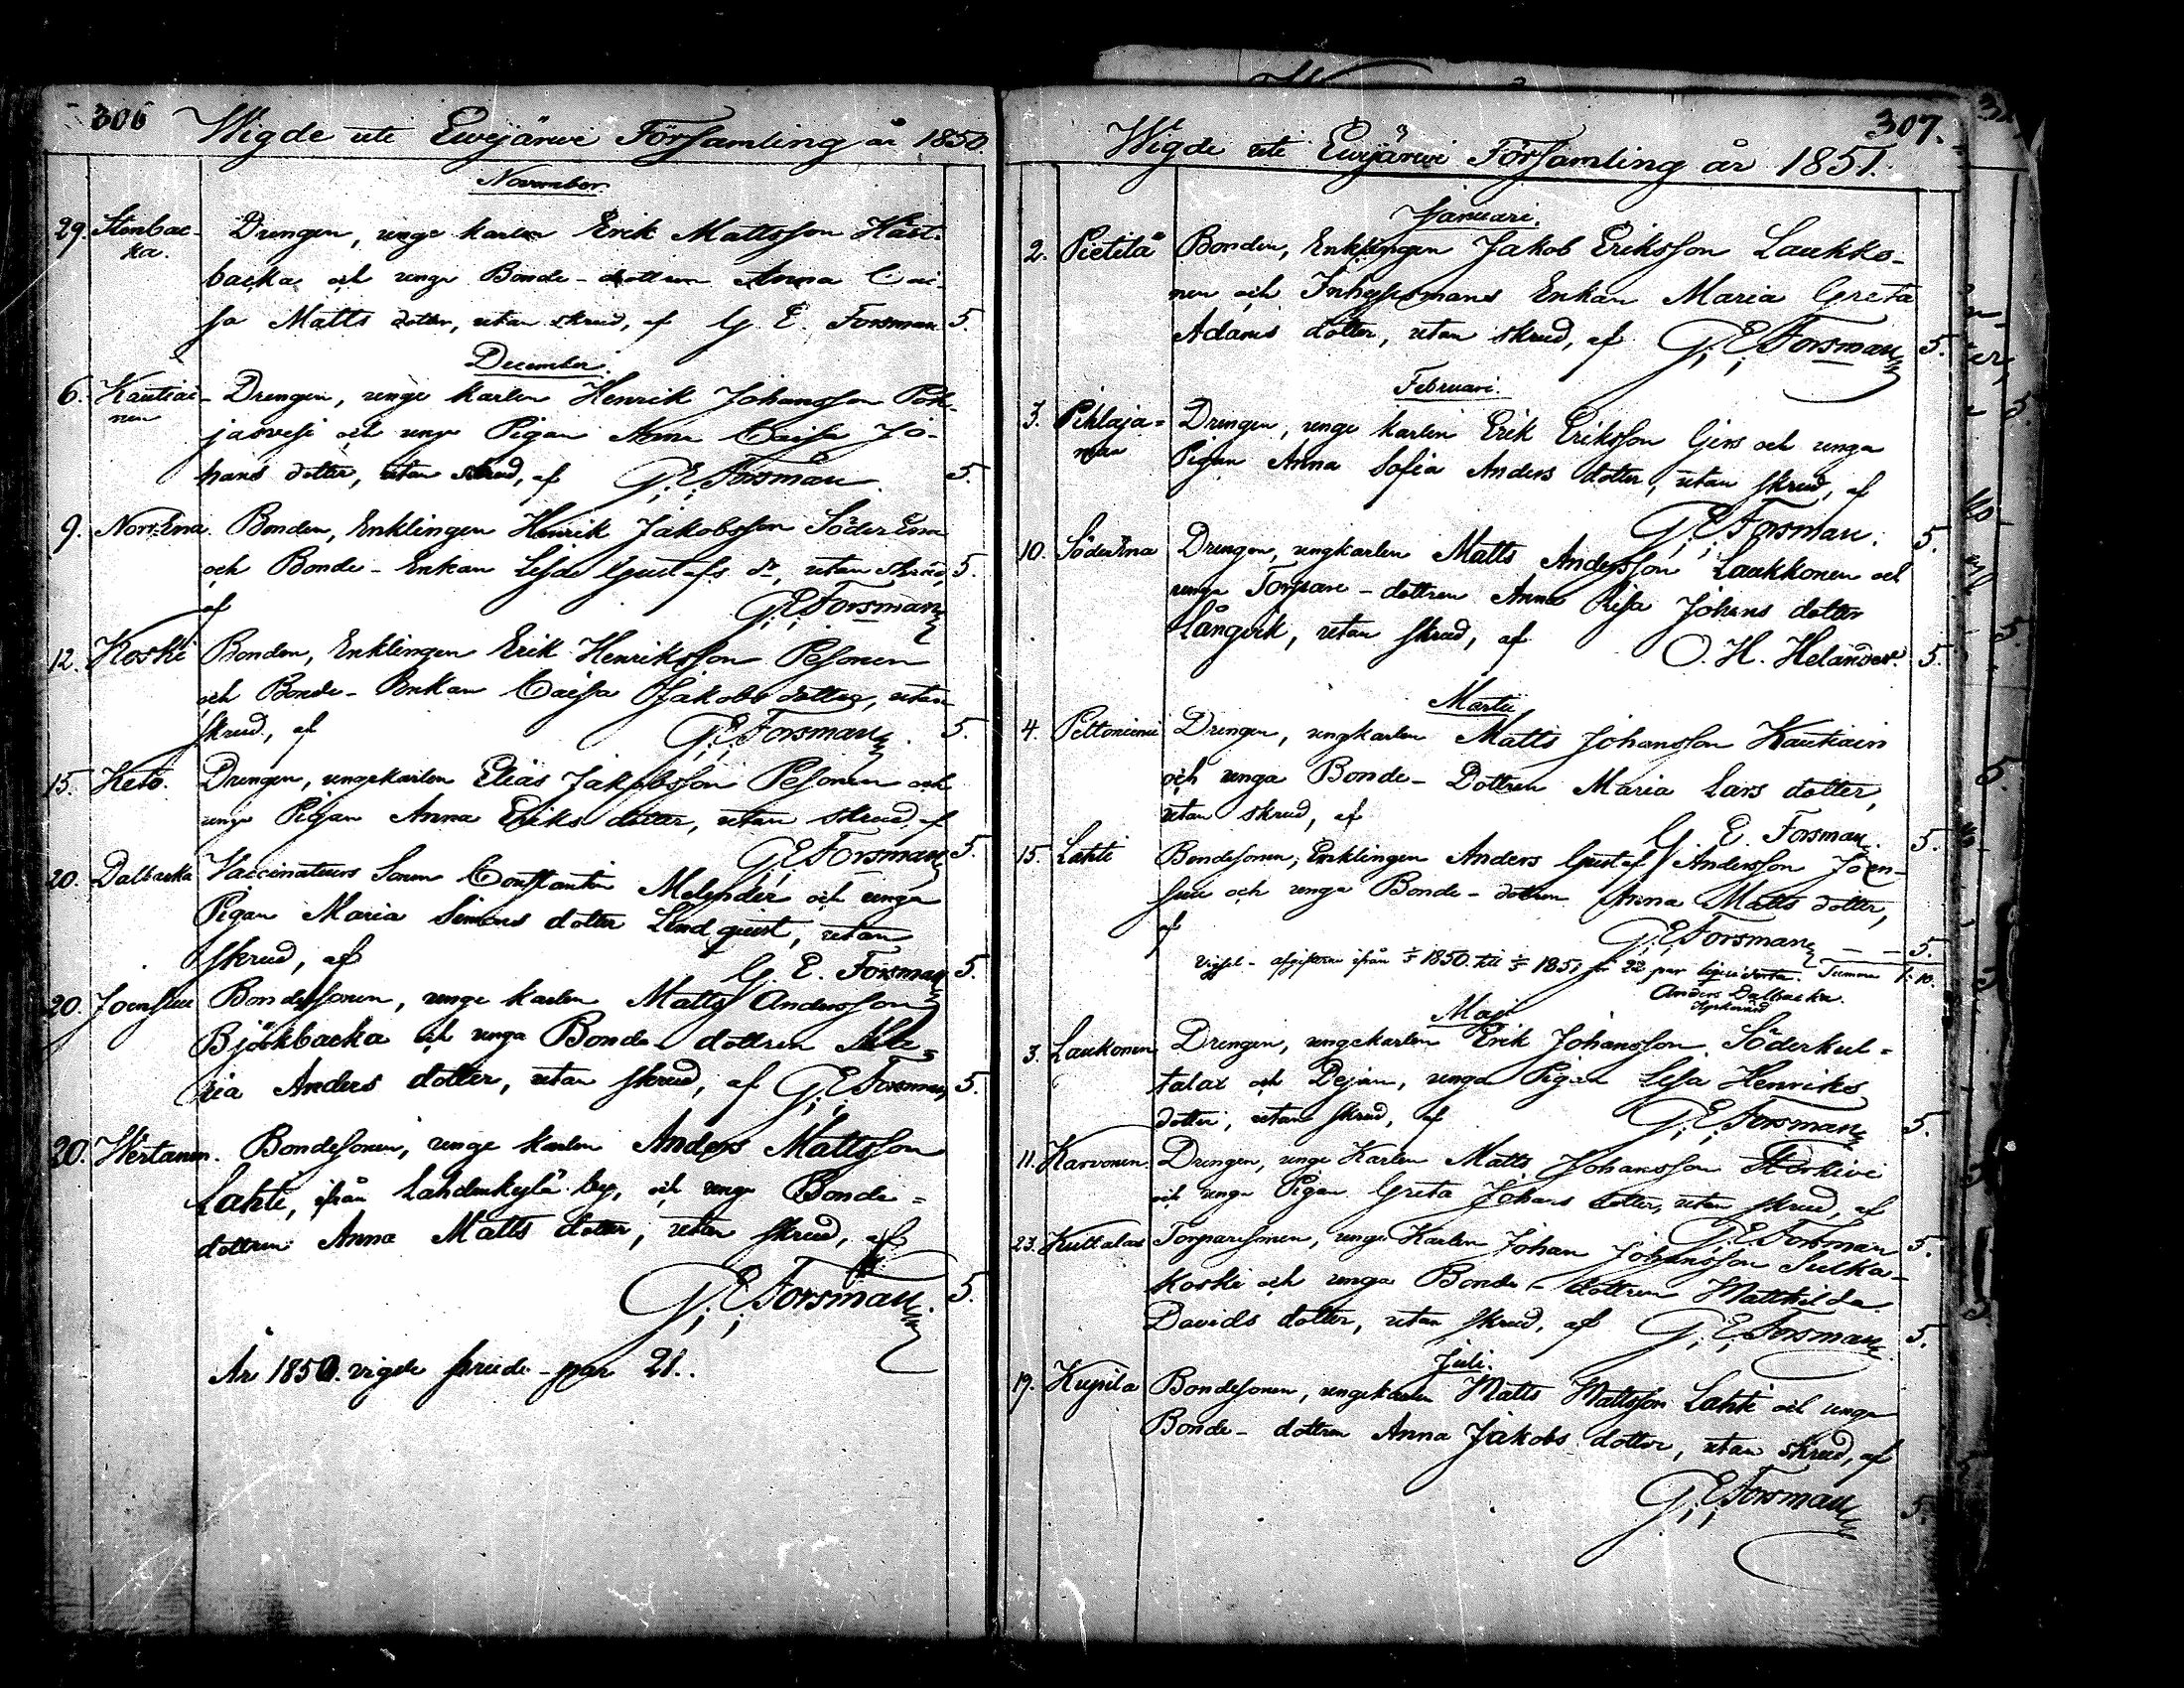 306
Wigde uti Ewijärwi Församling år 1850.
November.
29. Stenbac- Drengen, unge karlen Erik Mattsson Häst-
ka. backa och unga Bonde-dottren Anna Cai-
sa Matts dotter, utan skrud, af G. E. Forsman 5.
December.
6. Kautiai- Drengen, unge karlen Henrik Johansson Poh-
nen jasvesi och unga Pigan Anna Caisa Jo-
hans dotter, utan skrud, af G. E. Forsman. 5.
9. Norr-Ena. Bonden, Enklingen Henrik Jakobsson SöderEna
och Bonde-Enkan Lisa Gustafs dr, utan skrud, 5.
af G. E. Forsman
12. Koski Bonden, Enklingen Erik Henriksson Pesonen
och Bonde-Enkan Caisa Jakobs dotter, utan
skrud, af G. E. Forsman. 5.
15. Keto. Drengen, ungekarlen Elias Jakobsson Pesonen och
unga Pigan Anna Eriks dotter, utan skrud, af
G. E. Forsman 5.
20. Dalbacka Vaccinateurs Sonen Constantin Melender och unga
Pigan Maria Simons dotter Lindquist, utan
skrud, af G. E. Forsman 5.
20. Joensuu Bondesonen, unge karlen Matts Andersson
Björkbacka och unga Bonde-dottren Ma-
ria Anders dotter, utan skrud, af G. E. Forsman 5.
20. Wertanen. Bondesonen, unge karlen Anders Mattsson
Lahti, ifrån Lahdenkylä by, och unga Bonde-
dottren Anna Matts dotter, utan skrud, af
G. E. Forsman. 5.
År 1850. vigde brude-par 21..
307.
Wigde uti Ewijärwi Församling år 1851.
Januari.
2. Pietilä Bonden, Enklingen Jakob Eriksson Laukko-
nen och Inhysesmans Enkan Maria Greta
Adams dotter, utan skrud, af G. E. Forsman 5.
Februari.
3. Pihlaja- Drengen, unge karlen Erik Eriksson Girs och unga
maa Pigan Anna Sofia Anders dotter, utan skrud, af
G. E. Forsman. 5.
10. SöderEna Drengen, ungkarlen Matts Andersson Laukkonen och
unga Torpare-dottren Anna Lisa Johans dotter
Långvik, utan skrud, af O. H. Helander. 5.
Martii
4. Peltoniemi Drengen, ungkarlen Matts Johansson Kautiain
och unga Bonde-Dottren Maria Lars dotter,
utan skrud, af G. E. Forsman. 5.
15. Lahti Bondesonen, Enklingen Anders Gustaf Andersson Joen-
suu och unga Bonde-dottren Anna Matts dotter,
af G. E. Forsman — — 5.
Vigsel-afgifterne ifrån 1850. till 1851 för 22 par liqviderta. Summa 1: 10.
Anders Dalbacka.
Kyrkovärd
Maji
3. Laukonen Drengen, ungekarlen Erik Johansson Söderkul-
talax och Pejan, unga Pigan Lisa Henriks
dotter, utan skrud, af G. E. Forsman 5.
11. Karvonen. Drengen, unge Karlen Matts Johansson Storkivi
och unga Pigan Greta Johans dotter, utan skrud, af
G. E. Forsman 5.
23. Kultalax Torparesonen, unge Karlen Johan Johansson Sulka-
koski och unga Bonde-dottren Matthilda
Davids dotter, utan skrud, af G. E. Forsman. 5.
Juli.
19. Kujpila Bondesonen, ungekarlen Matts Mattsson Lahti och unga
Bonde-dottren Anna Jakobs dotter, utan skrud, af
G. E. Forsman 5.